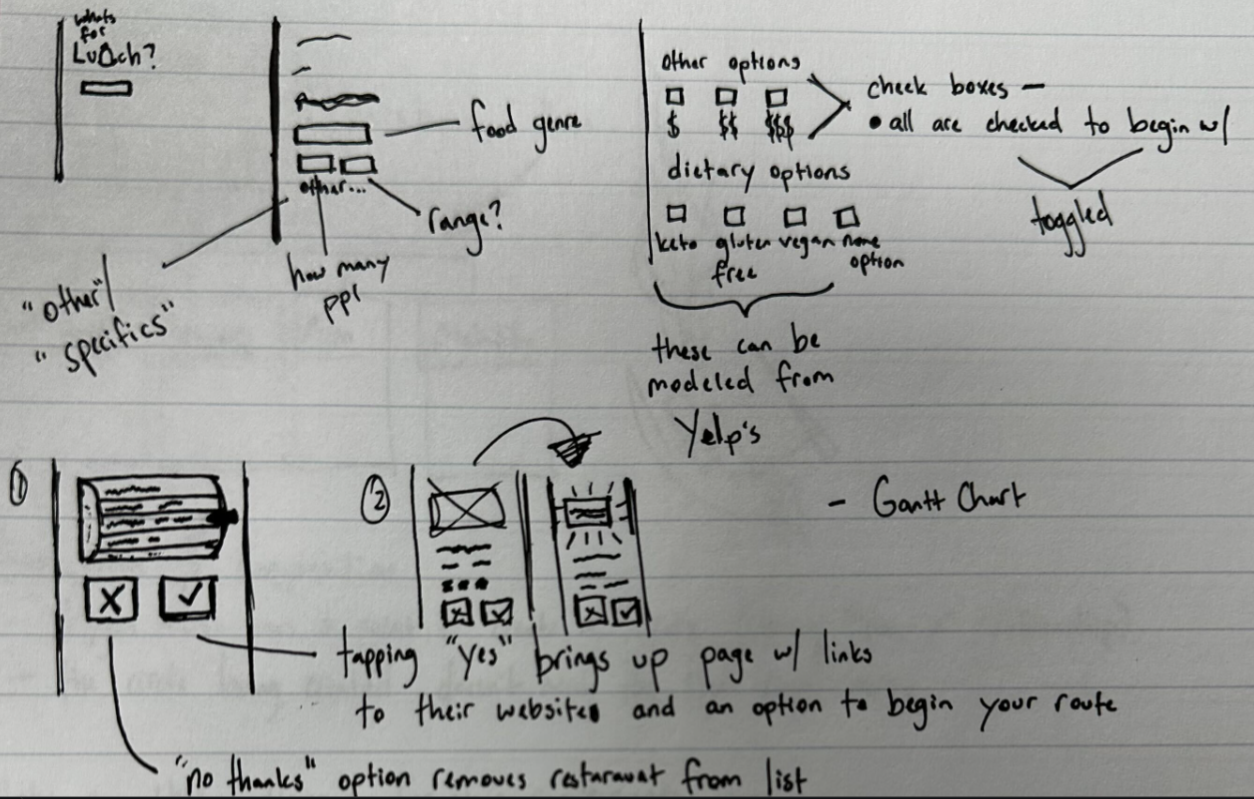 whats
for
Lunch?
food genre
other...
range?
how many
ppl
"other"/
"specifics"
other options
$ $$ $$$
check boxes —
• all are checked to begin w/
toggled
dietary options
keto gluten free vegan none option
these can be
modeled from
Yelp's
- Gantt Chart
①
X ✓
②
X ✓
X ✓
tapping "yes" brings up page w/ links
to their websites and an option to begin your route
"no thanks" option removes restaravat from list